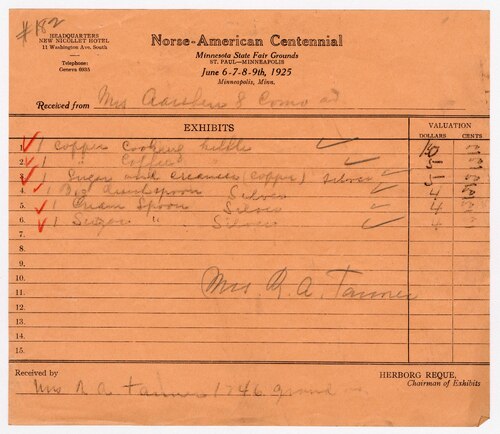 #182
HEADQUARTERS
NEW NICOLLET HOTEL
11 Washington Ave. South
Telephone:
Geneva 6935
Norse-American Centennial
Minnesota State Fair Grounds
ST. PAUL—MINNEAPOLIS
June 6-7-8-9th, 1925
Minneapolis, Minn.
Received from Mrs
EXHIBITS
VALUATION
DOLLARS CENTS
1. 1 Copper Cooking kettle 10
2. 1 " Coffee " 5
3. 1 Sugar and Creamer (Copper) Silver 5
4. 1 spoon Silver 4
5. 1 Cream Spoon Silver 4
6. 1 Sugar " Silver 4
7.
8.
9.
10.
11. Mrs R. A. Tanner
12.
13.
14.
15.
Received by
Mrs R A Tanner 1746
HERBORG REQUE,
Chairman of Exhibits